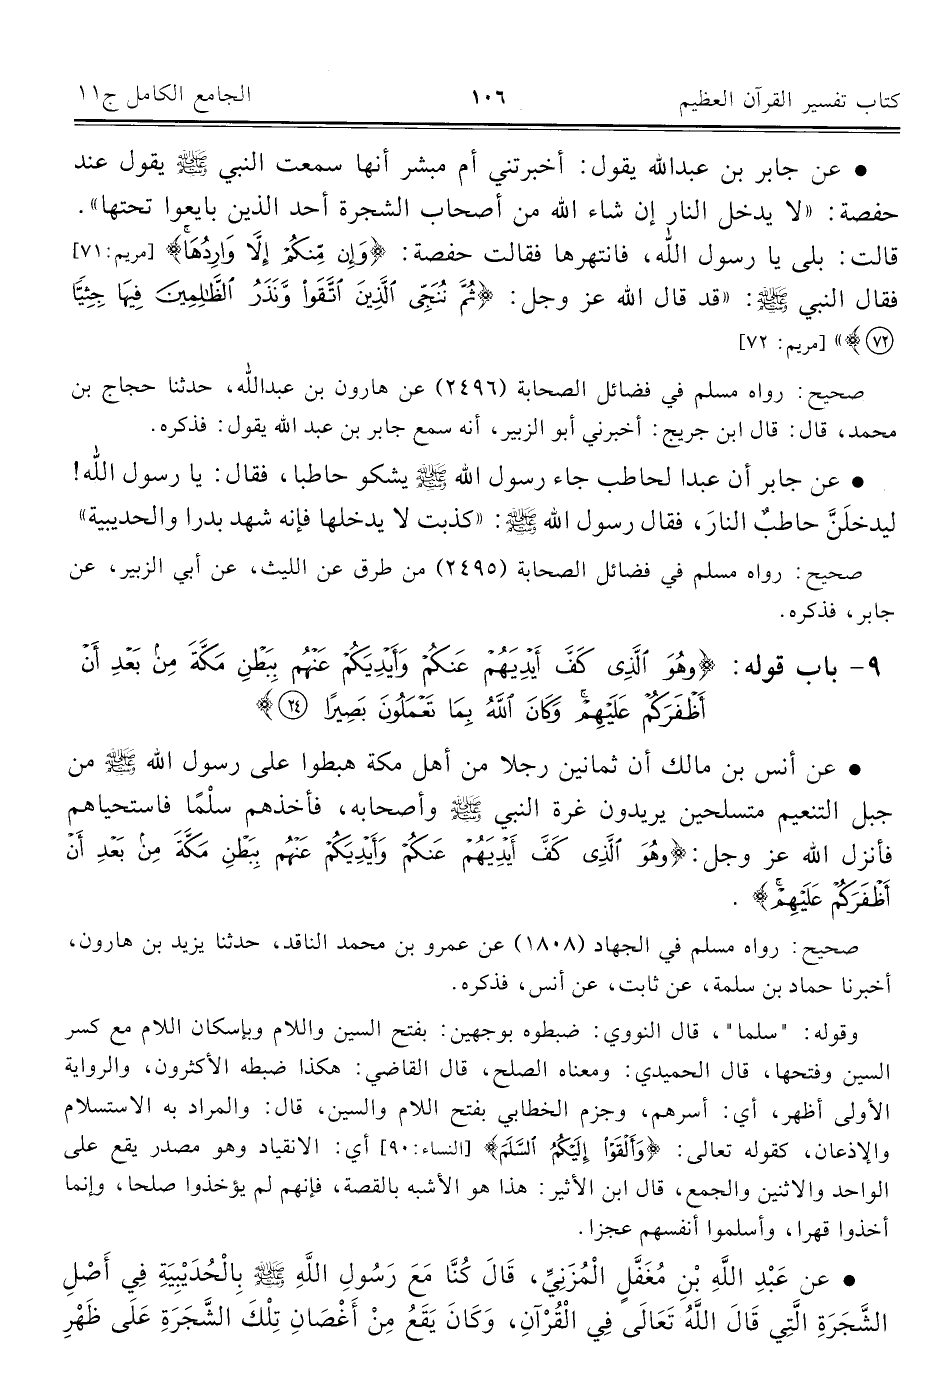 كتاب تفسير القرآن العظيم ١٠٦ الجامع الكامل ج١١
• عن جابر بن عبدالله يقول: أخبرتني أم مبشر أنها سمعت النبي ﷺ يقول عند
حفصة: «لا يدخل النار إن شاء الله من أصحاب الشجرة أحد الذين بايعوا تحتها».
قالت: بلى يا رسول الله، فانتهرها فقالت حفصة: ﴿وَإِن مِّنكُمْ إِلَّا وَارِدُهَا﴾ [مريم: ٧١]
فقال النبي ﷺ: «قد قال الله عز وجل: ﴿ثُمَّ نُنَجِّى ٱلَّذِينَ ٱتَّقَوا۟ وَّنَذَرُ ٱلظَّٰلِمِينَ فِيهَا جِثِيًّا
٧٢﴾» [مريم: ٧٢]
صحيح: رواه مسلم في فضائل الصحابة (٢٤٩٦) عن هارون بن عبدالله، حدثنا حجاج بن
محمد، قال: قال ابن جريج: أخبرني أبو الزبير، أنه سمع جابر بن عبد الله يقول: فذكره.
• عن جابر أن عبدا لحاطب جاء رسول الله ﷺ يشكو حاطبا، فقال: يا رسول الله!
ليدخلَنَّ حاطبٌ النارَ، فقال رسول الله ﷺ: «كذبت لا يدخلها فإنه شهد بدرا والحديبية»
صحيح: رواه مسلم في فضائل الصحابة (٢٤٩٥) من طرق عن الليث، عن أبي الزبير، عن
جابر، فذكره.
٩- باب قوله: ﴿وَهُوَ ٱلَّذِى كَفَّ أَيْدِيَهُمْ عَنكُمْ وَأَيْدِيَكُمْ عَنْهُم بِبَطْنِ مَكَّةَ مِنۢ بَعْدِ أَنْ
أَظْفَرَكُمْ عَلَيْهِمْ وَكَانَ ٱللَّهُ بِمَا تَعْمَلُونَ بَصِيرًا ٢٤﴾
• عن أنس بن مالك أن ثمانين رجلا من أهل مكة هبطوا على رسول الله ﷺ من
جبل التنعيم متسلحين يريدون غرة النبي ﷺ وأصحابه، فأخذهم سلْمًا فاستحياهم
فأنزل الله عز وجل: ﴿وَهُوَ ٱلَّذِى كَفَّ أَيْدِيَهُمْ عَنكُمْ وَأَيْدِيَكُمْ عَنْهُم بِبَطْنِ مَكَّةَ مِنۢ بَعْدِ أَنْ
أَظْفَرَكُمْ عَلَيْهِمْ﴾ .
صحيح: رواه مسلم في الجهاد (١٨٠٨) عن عمرو بن محمد الناقد، حدثنا يزيد بن هارون،
أخبرنا حماد بن سلمة، عن ثابت، عن أنس، فذكره.
وقوله: "سلما"، قال النووي: ضبطوه بوجهين: بفتح السين واللام وبإسكان اللام مع كسر
السين وفتحها، قال الحميدي: ومعناه الصلح، قال القاضي: هكذا ضبطه الأكثرون، والرواية
الأولى أظهر، أي: أسرهم، وجزم الخطابي بفتح اللام والسين، قال: والمراد به الاستسلام
والإذعان، كقوله تعالى: ﴿وَأَلْقَوْا۟ إِلَيْكُمُ ٱلسَّلَمَ﴾ [النساء: ٩٠] أي: الانقياد وهو مصدر يقع على
الواحد والاثنين والجمع، قال ابن الأثير: هذا هو الأشبه بالقصة، فإنهم لم يؤخذوا صلحا، وإنما
أخذوا قهرا، وأسلموا أنفسهم عجزا.
• عن عَبْدِ اللَّهِ بْنِ مُغَفَّلٍ الْمُزَنِيِّ، قَالَ كُنَّا مَعَ رَسُولِ اللَّهِ ﷺ بِالْحُدَيْبِيَةِ فِي أَصْلِ
الشَّجَرَةِ الَّتِي قَالَ اللَّهُ تَعَالَى فِي الْقُرْآنِ، وَكَانَ يَقَعُ مِنْ أَغْصَانِ تِلْكَ الشَّجَرَةِ عَلَى ظَهْرِ